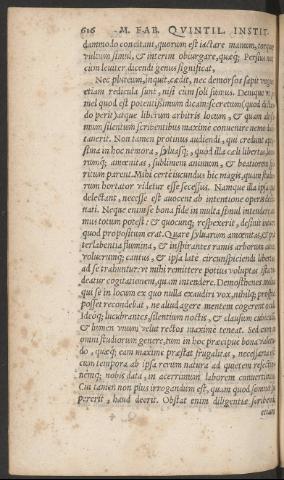 616 M. FAB. QVINTIL. INSTIT.
dammodo concitant, quorum est iactare manum, torquere
vultum simul, & interim obiurgare, quæq; Persius
cùm leuiter dicendi genus significat,
Nec pluteum, inquit, cædit, nec demorsos sapit vngues
etiam ridicula sunt, nisi cùm soli sumus. Denique
mel quod est potentissimum dicam: secretum, quod dictando
perit, atque liberum arbitris locum, & quàm altissi-
mum silentium scribentibus maxime conuenire nemo dubi-
tauerit. Non tamen protinus audiendi, qui credunt
sima in hoc nemora, siluasq;, quod illa cæli libertas, loco-
rumq; amœnitas, sublimem animum, & beatiorem spi-
ritum parent. Mihi certè iucundus hic magis, quàm studio-
rum hortator videtur esse secessus. Namque illa ipsa quæ
delectant, necesse est auocent ab intentione operis desti-
nati. Neque enim se bona fide in multa simul intendere ani-
mus totum potest: & quocunq; respexerit, desinit intueri
quod propositum erat. Quare syluarum amœnitas, & præ-
terlabentia flumina, & inspirantes ramis arborum auræ,
volucrumq; cantus, & ipsa latè circunspiciendi libertas
ad se trahunt: vt mihi remittere potius voluptas ista vi-
deatur cogitationem, quàm intendere. Demosthenes melius
qui se in locum ex quo nulla exaudiri vox, nihilq; prospici
posset recondebat, ne aliud agere mentem cogerent oculi.
Ideòq; lucubrantes, silentium noctis, & clausum cubiculum,
& lumen vnum velut rectos maxime teneat. Sed cùm in
omni studiorum genere, tum in hoc præcipue bona valetu-
do, quæq; eam maxime præstat, frugalitas, necessaria est:
cùm tempora ab ipsa rerum natura ad quietem refectio-
nemq; nobis data, in acerrimum laborem conuertimus.
Cui tamen non plus irrogandum est, quàm quod somno su-
pererit, haud deerit. Obstat enim diligentiæ scribendi
etiam